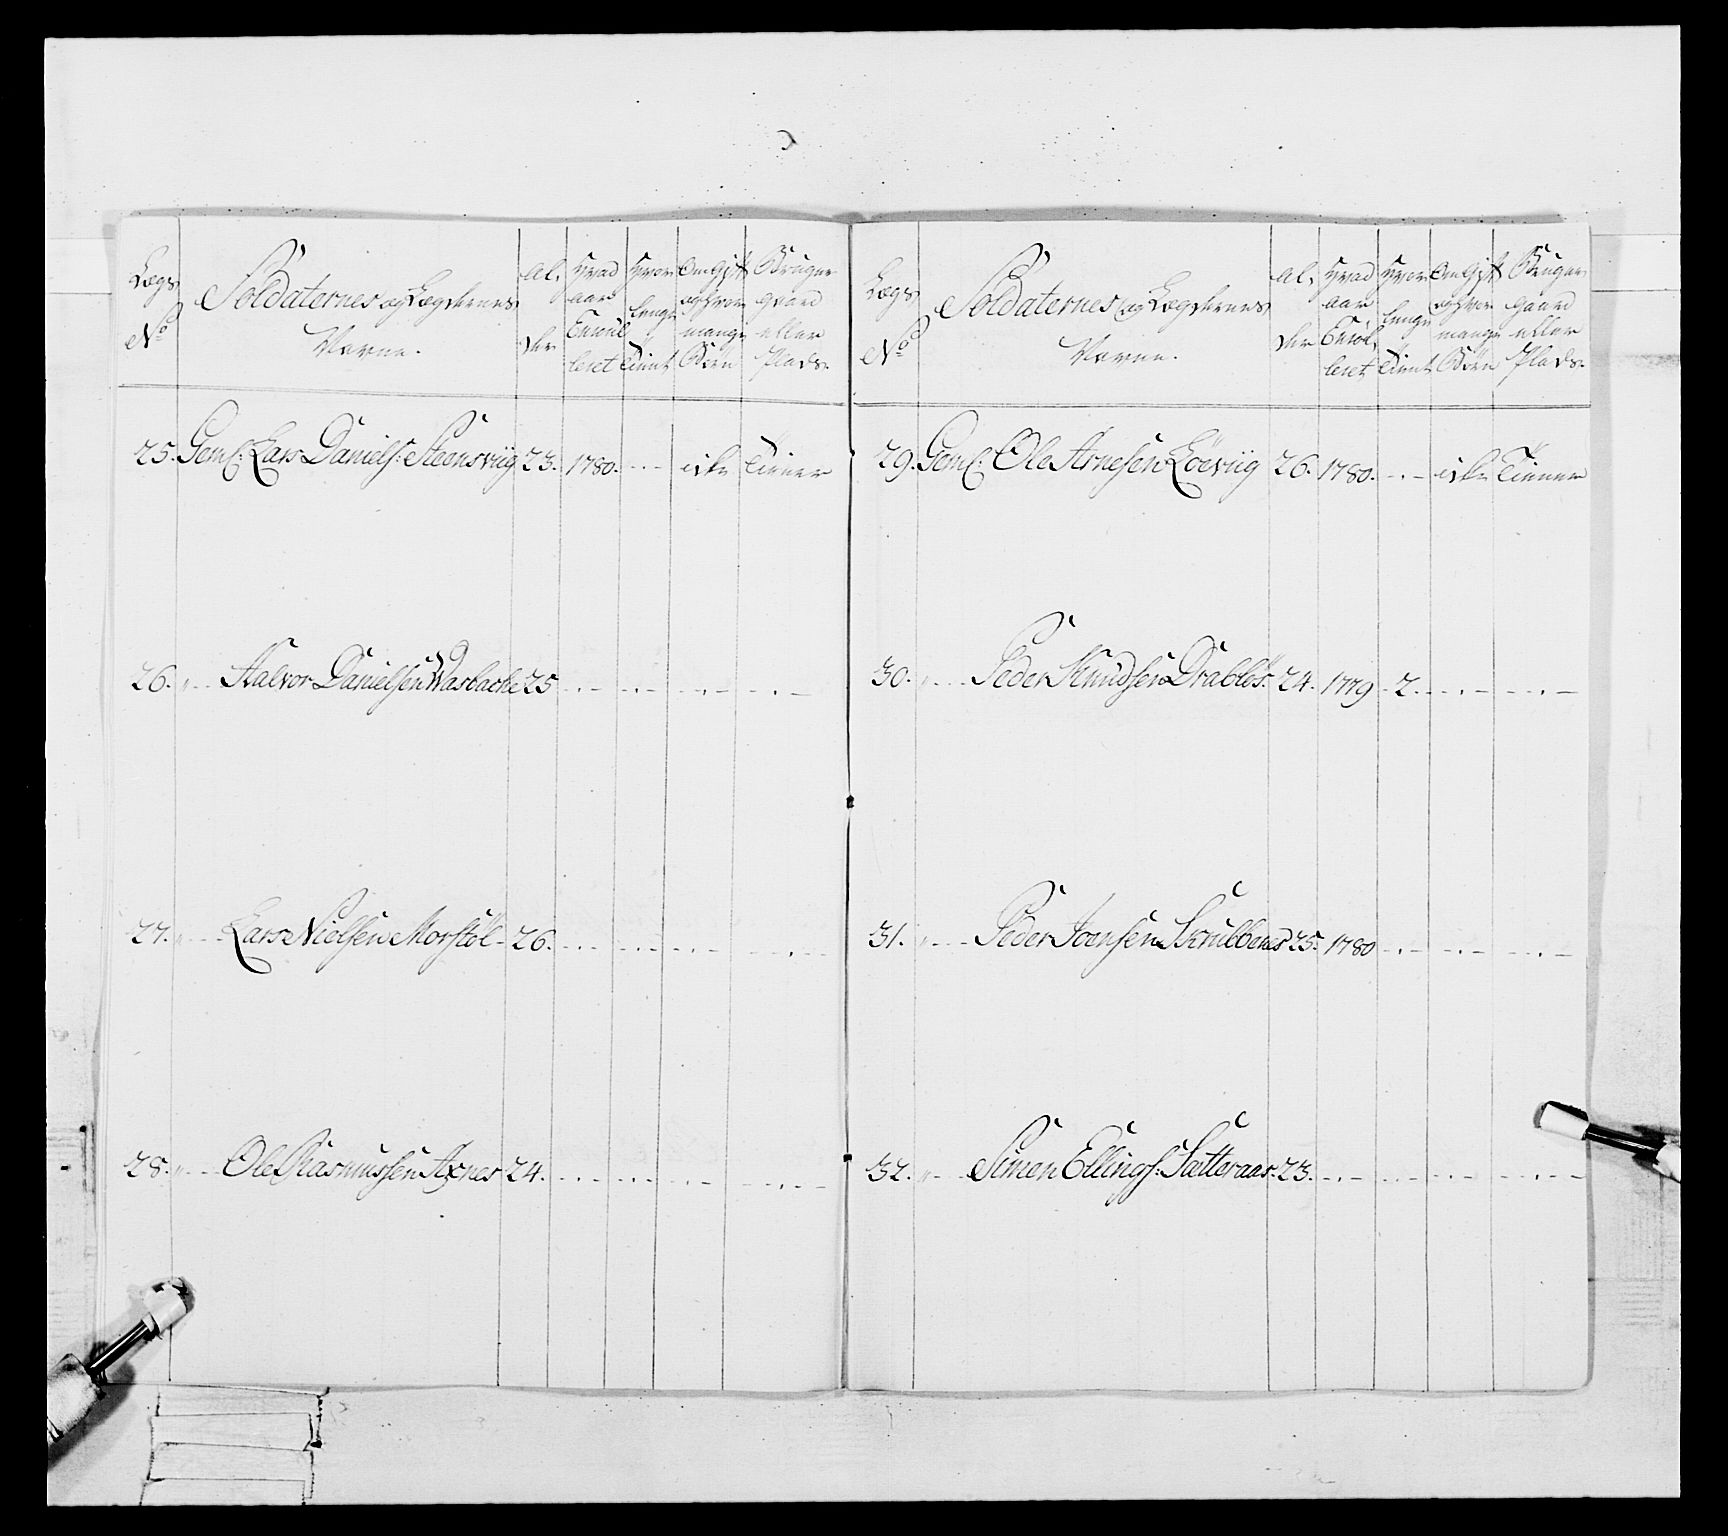 Lægs No | Soldaternes og Lægdernes Navne. | Al, der | Hvad aar Enrol leret | Hvor lenge Tient | Om Gift og Hvor mange Børn | Bruger gaard eller Plads.
25. Geml: Lars Daniels: Steensviig 23. 1780. -.- icke Tiener
26. „ - Halvor Danielsen Wasbache 25 -.- -.- -.- -.-
27. „ - Lars Nielsen Morstöl - 26. -.- -.- -.- -.-
28. „ - Ole Rasmussen Axnes 24. -.- -.- -.- -.-
Lægs No | Soldaternes og Lægdernes Navne. | Al, der | Hvad aar Enrol, leret | Hvor lenge Tient | Om Gift og Hvor mange Børn | Bruger gaard eller Plads.
29. Geml: Ole Arnesen Löeviig 26. 1780. -.- icke Tiener
30. „ - Peder Knudsen Drabløs. 24. 1779 - 2. -.- -.-
31. „ - Peder Joensen Skrubbenes 25. 1780 -.- -.- -.-
32. „ - Simen Ellings: Sætteraas. 23. -.- -.- -.- -.-